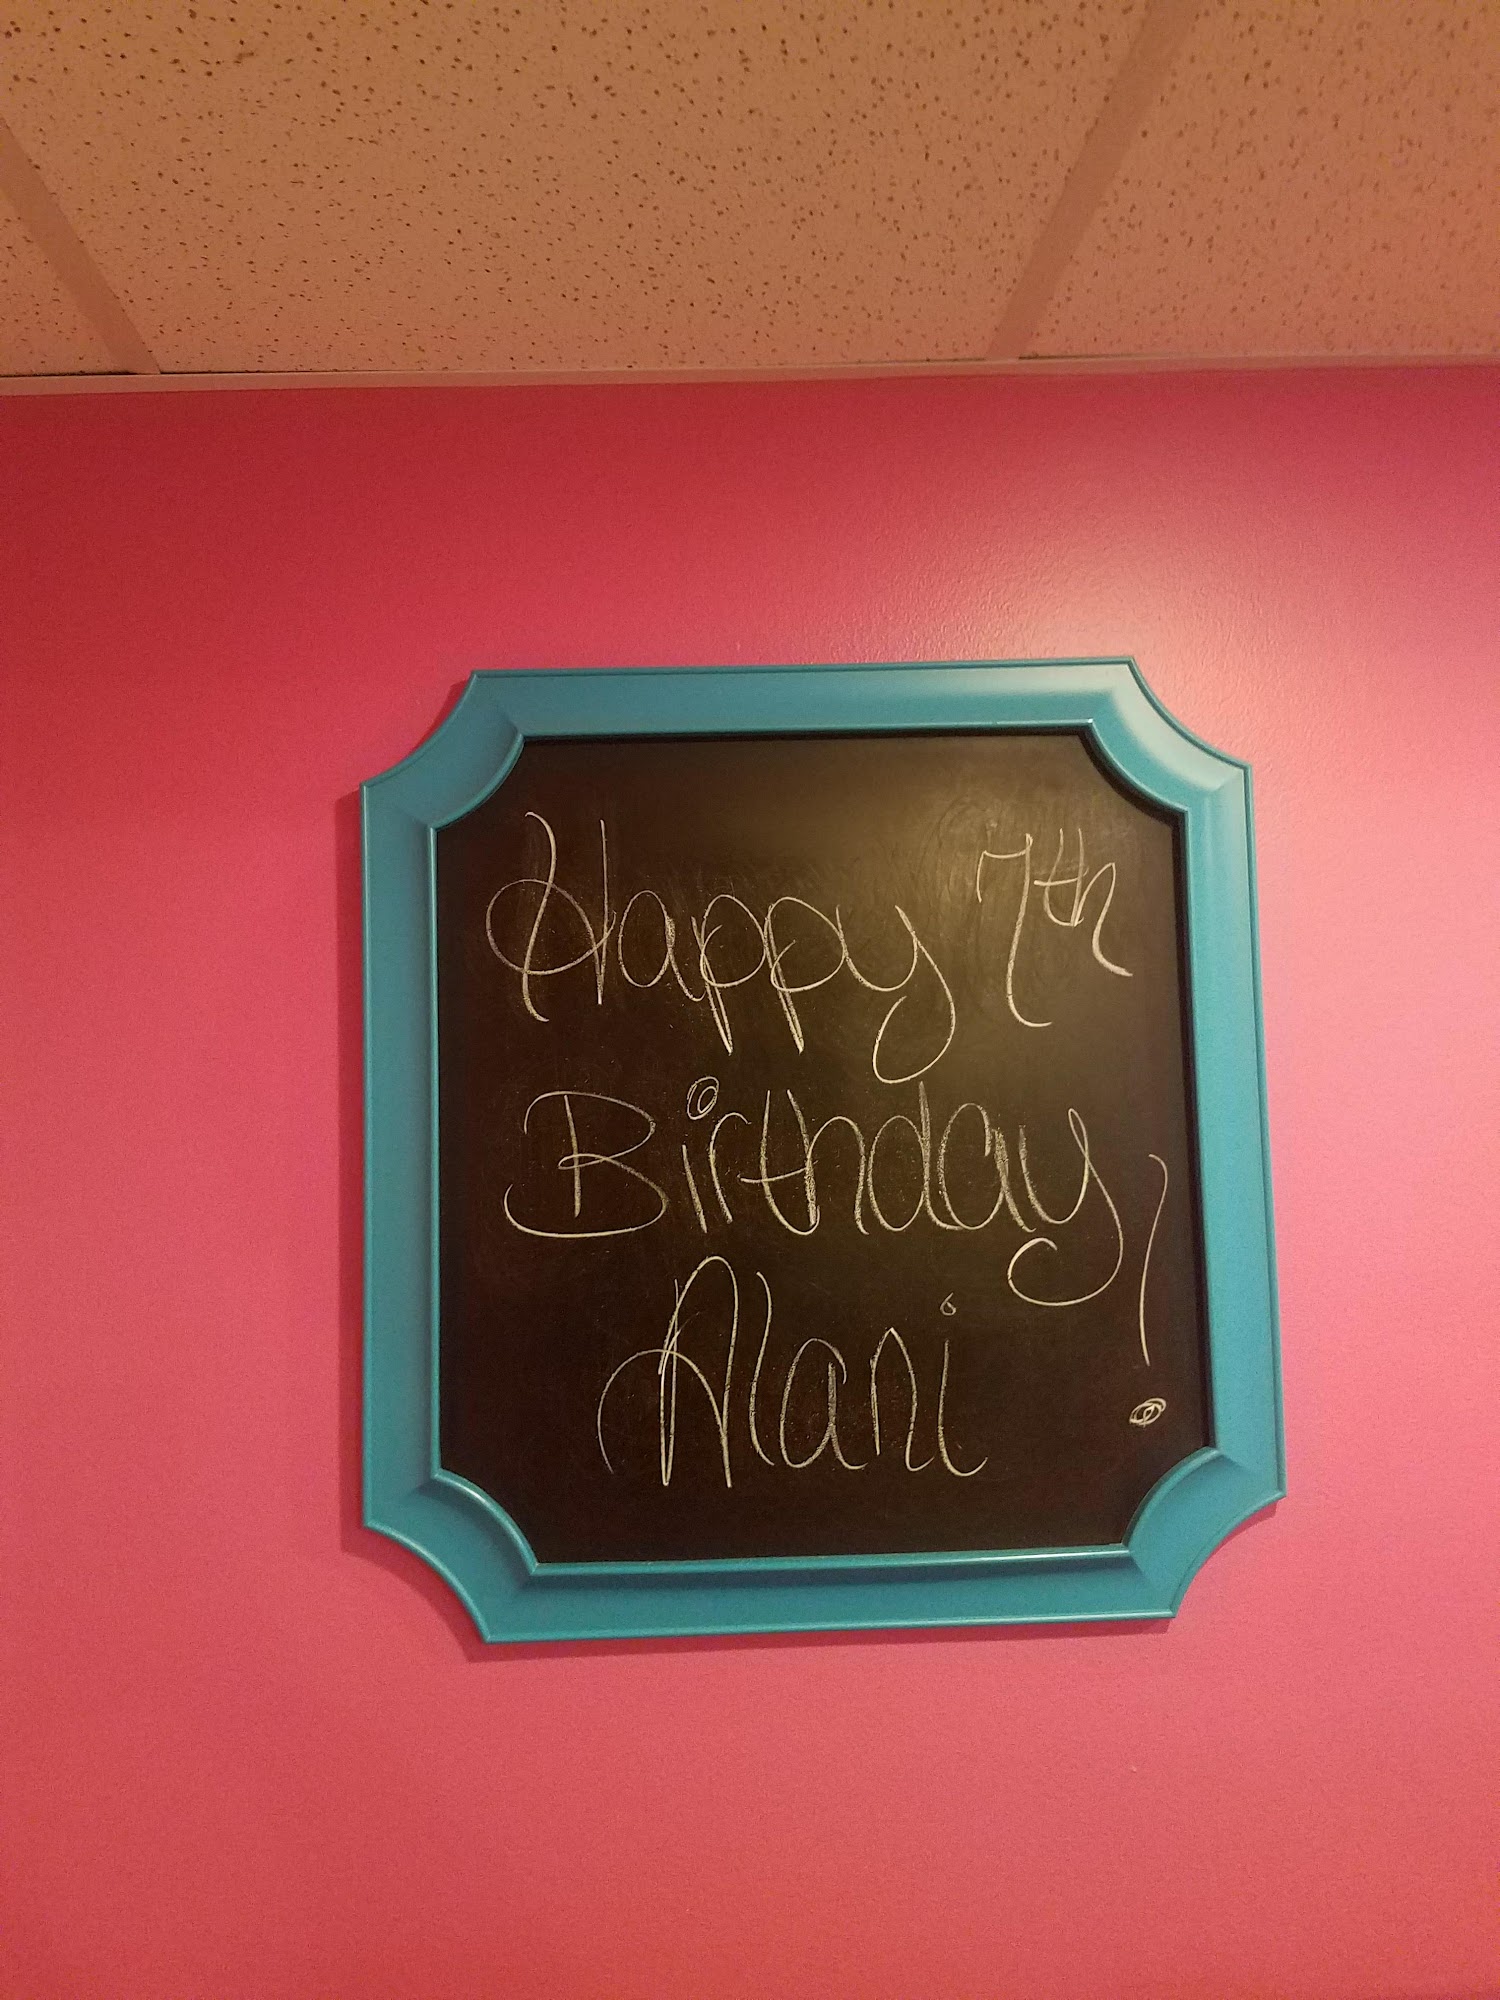 Happy 7th
Birthday
Alani!